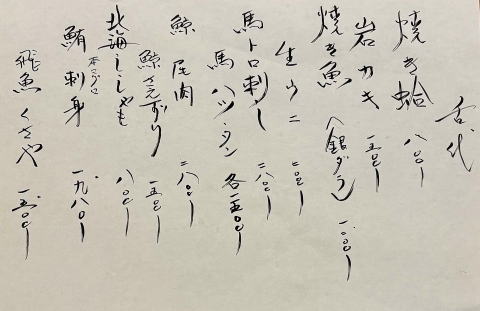 古代
焼き蛤 八〇〇ー
岩カキ 一五〇〇ー
焼き魚(銀ダラ) 一八〇〇ー
生ウニ 二〇〇〇ー
馬トロ刺し 二八〇〇ー
馬ハツ・タン 各一五〇〇ー
鯨尾肉 二八〇〇ー
鯨さえずり 一五〇〇ー
北海ししゃも 八〇〇ー
本マグロ
鮪刺身 一九八〇ー
飛魚くさや 一五〇〇ー